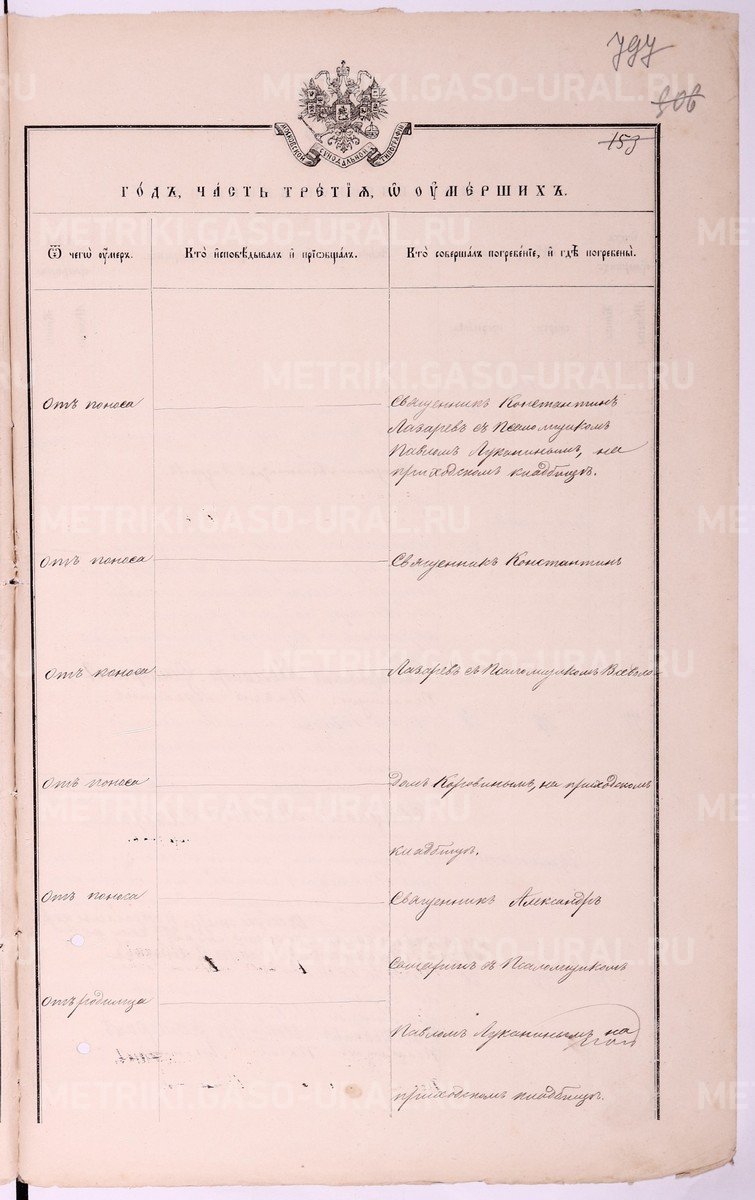 797
306
153
МОСКОВСКОЙ СѴНОДАЛЬНОЙ ТИПОГРАФІИ
ГО́ДЪ, ЧА́СТЬ ТРЕ́ТІѦ, Ѡ҆ ОУ҆МЕ́РШИХЪ.
Ѿ чегѡ̀ оу҆́меръ.
Кто̀ и҆сповѣ́дывалъ и҆ прїѡбща́лъ.
Кто̀ соверша́лъ погребе́нїе, и҆ гдѣ̀ погребены̀.
Отъ поноса
Священникъ Константинъ
Лазаревъ съ Псаломщикомъ
Павломъ Луканинымъ, на
приходскомъ кладбищѣ.
Отъ поноса
Священникъ Константинъ
Отъ поноса
Лазаревъ съ Псаломщикомъ Всеволо
Отъ поноса
домъ Коровинымъ, на приходскомъ
кладбищѣ.
Отъ поноса
Священникъ Александръ
съ Псаломщикомъ
Отъ родимца
Павломъ Луканинымъ на
приходскомъ кладбищѣ.
METRIKI.GASO-URAL.RU